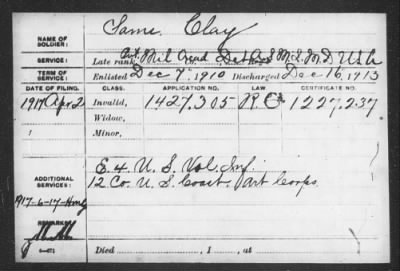 NAME OF SOLDIER: Sams. Clay
SERVICE: Late rank, Pvt. Mil Acad Det A.S. M.S. M.D. U.S.A
TERM OF SERVICE: Enlisted Dec 7", 1910 Discharged Dec 16, 1913
DATE OF FILING. CLASS. APPLICATION NO. LAW. CERTIFICATE NO.
1917 Apr. 2 Invalid, 1427,305 1227,237
Widow,
Minor,
ADDITIONAL SERVICE: E. 4. U. S. Vol. Inf.
12 Co. U. S. Coast. Art Corps.
1917-6-17-
REMARKS:
Died , 1 , at